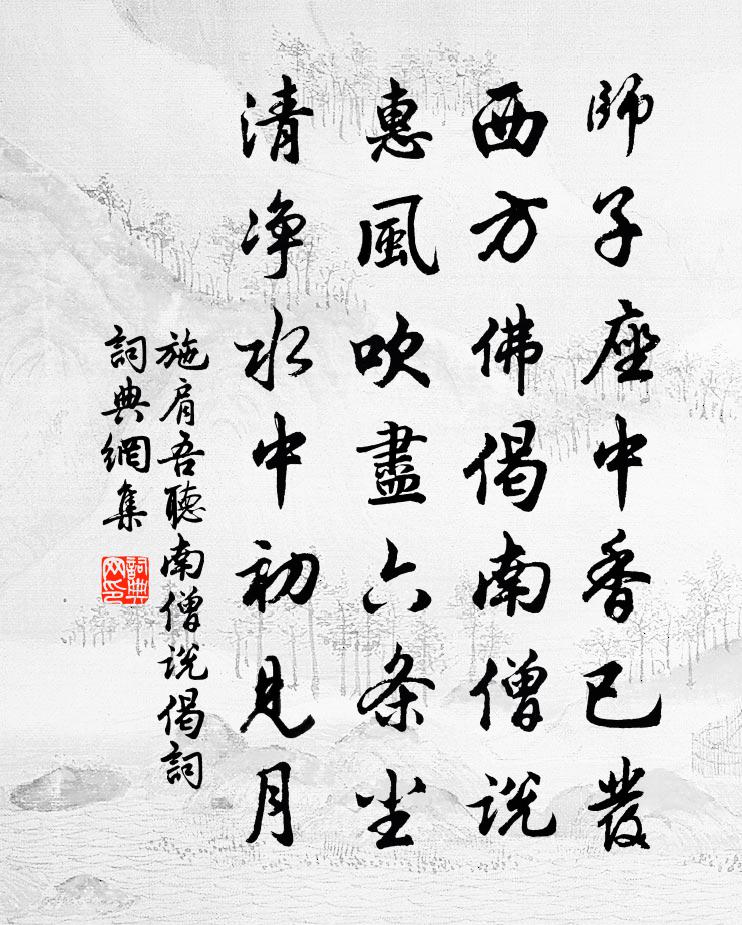 師子座中香已發
西方佛偈南僧說
惠風吹盡六条尘
清净水中初見月
施肩吾聽南僧說偈詞
詞典網集
詞典网印